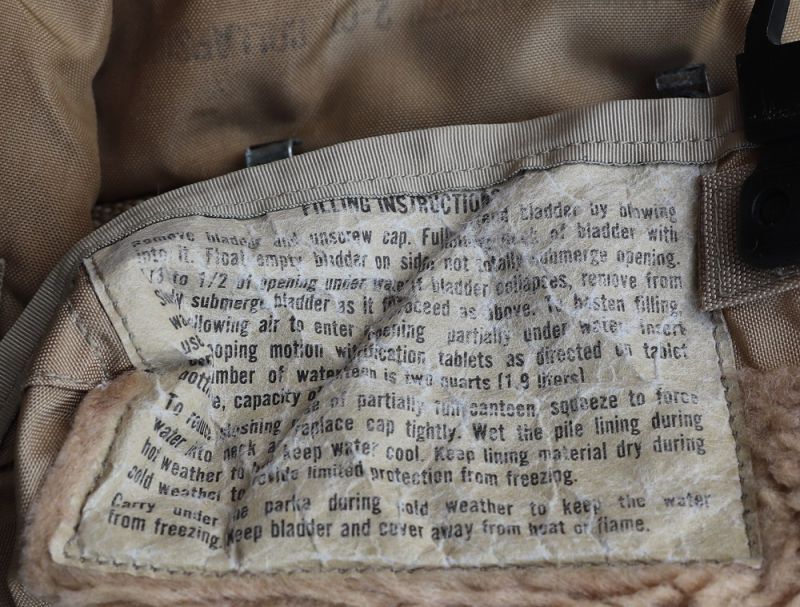 2-QT COLLAPS
FILLING INSTRUCTIONS
Remove bladder and unscrew cap. Fully extend bladder by blowing
into it. Float empty bladder on side not totally submerge opening.
1/3 to 1/2 of opening under water if bladder collapses, remove from
submerge bladder as it proceed as above. To hasten filling,
allowing air to enter opening partially under water insert
scooping motion with purification tablets as directed on tablet
bottle, number of water canteen is two quarts (1.9 liters)
capacity of
To reduce sloshing of partially full canteen, squeeze to force
water into neck and replace cap tightly. Wet the pile lining during
hot weather to keep water cool. Keep lining material dry during
cold weather to provide limited protection from freezing.
Carry under parka during cold weather to keep the water
from freezing. Keep bladder and cover away from heat or flame.